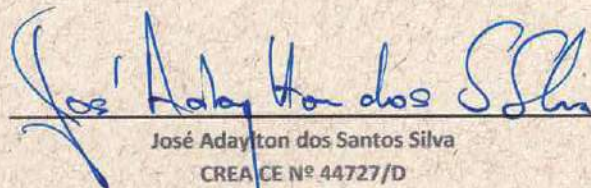 José Adaylton dos S Silva
José Adaylton dos Santos Silva
CREA CE Nº 44727/D